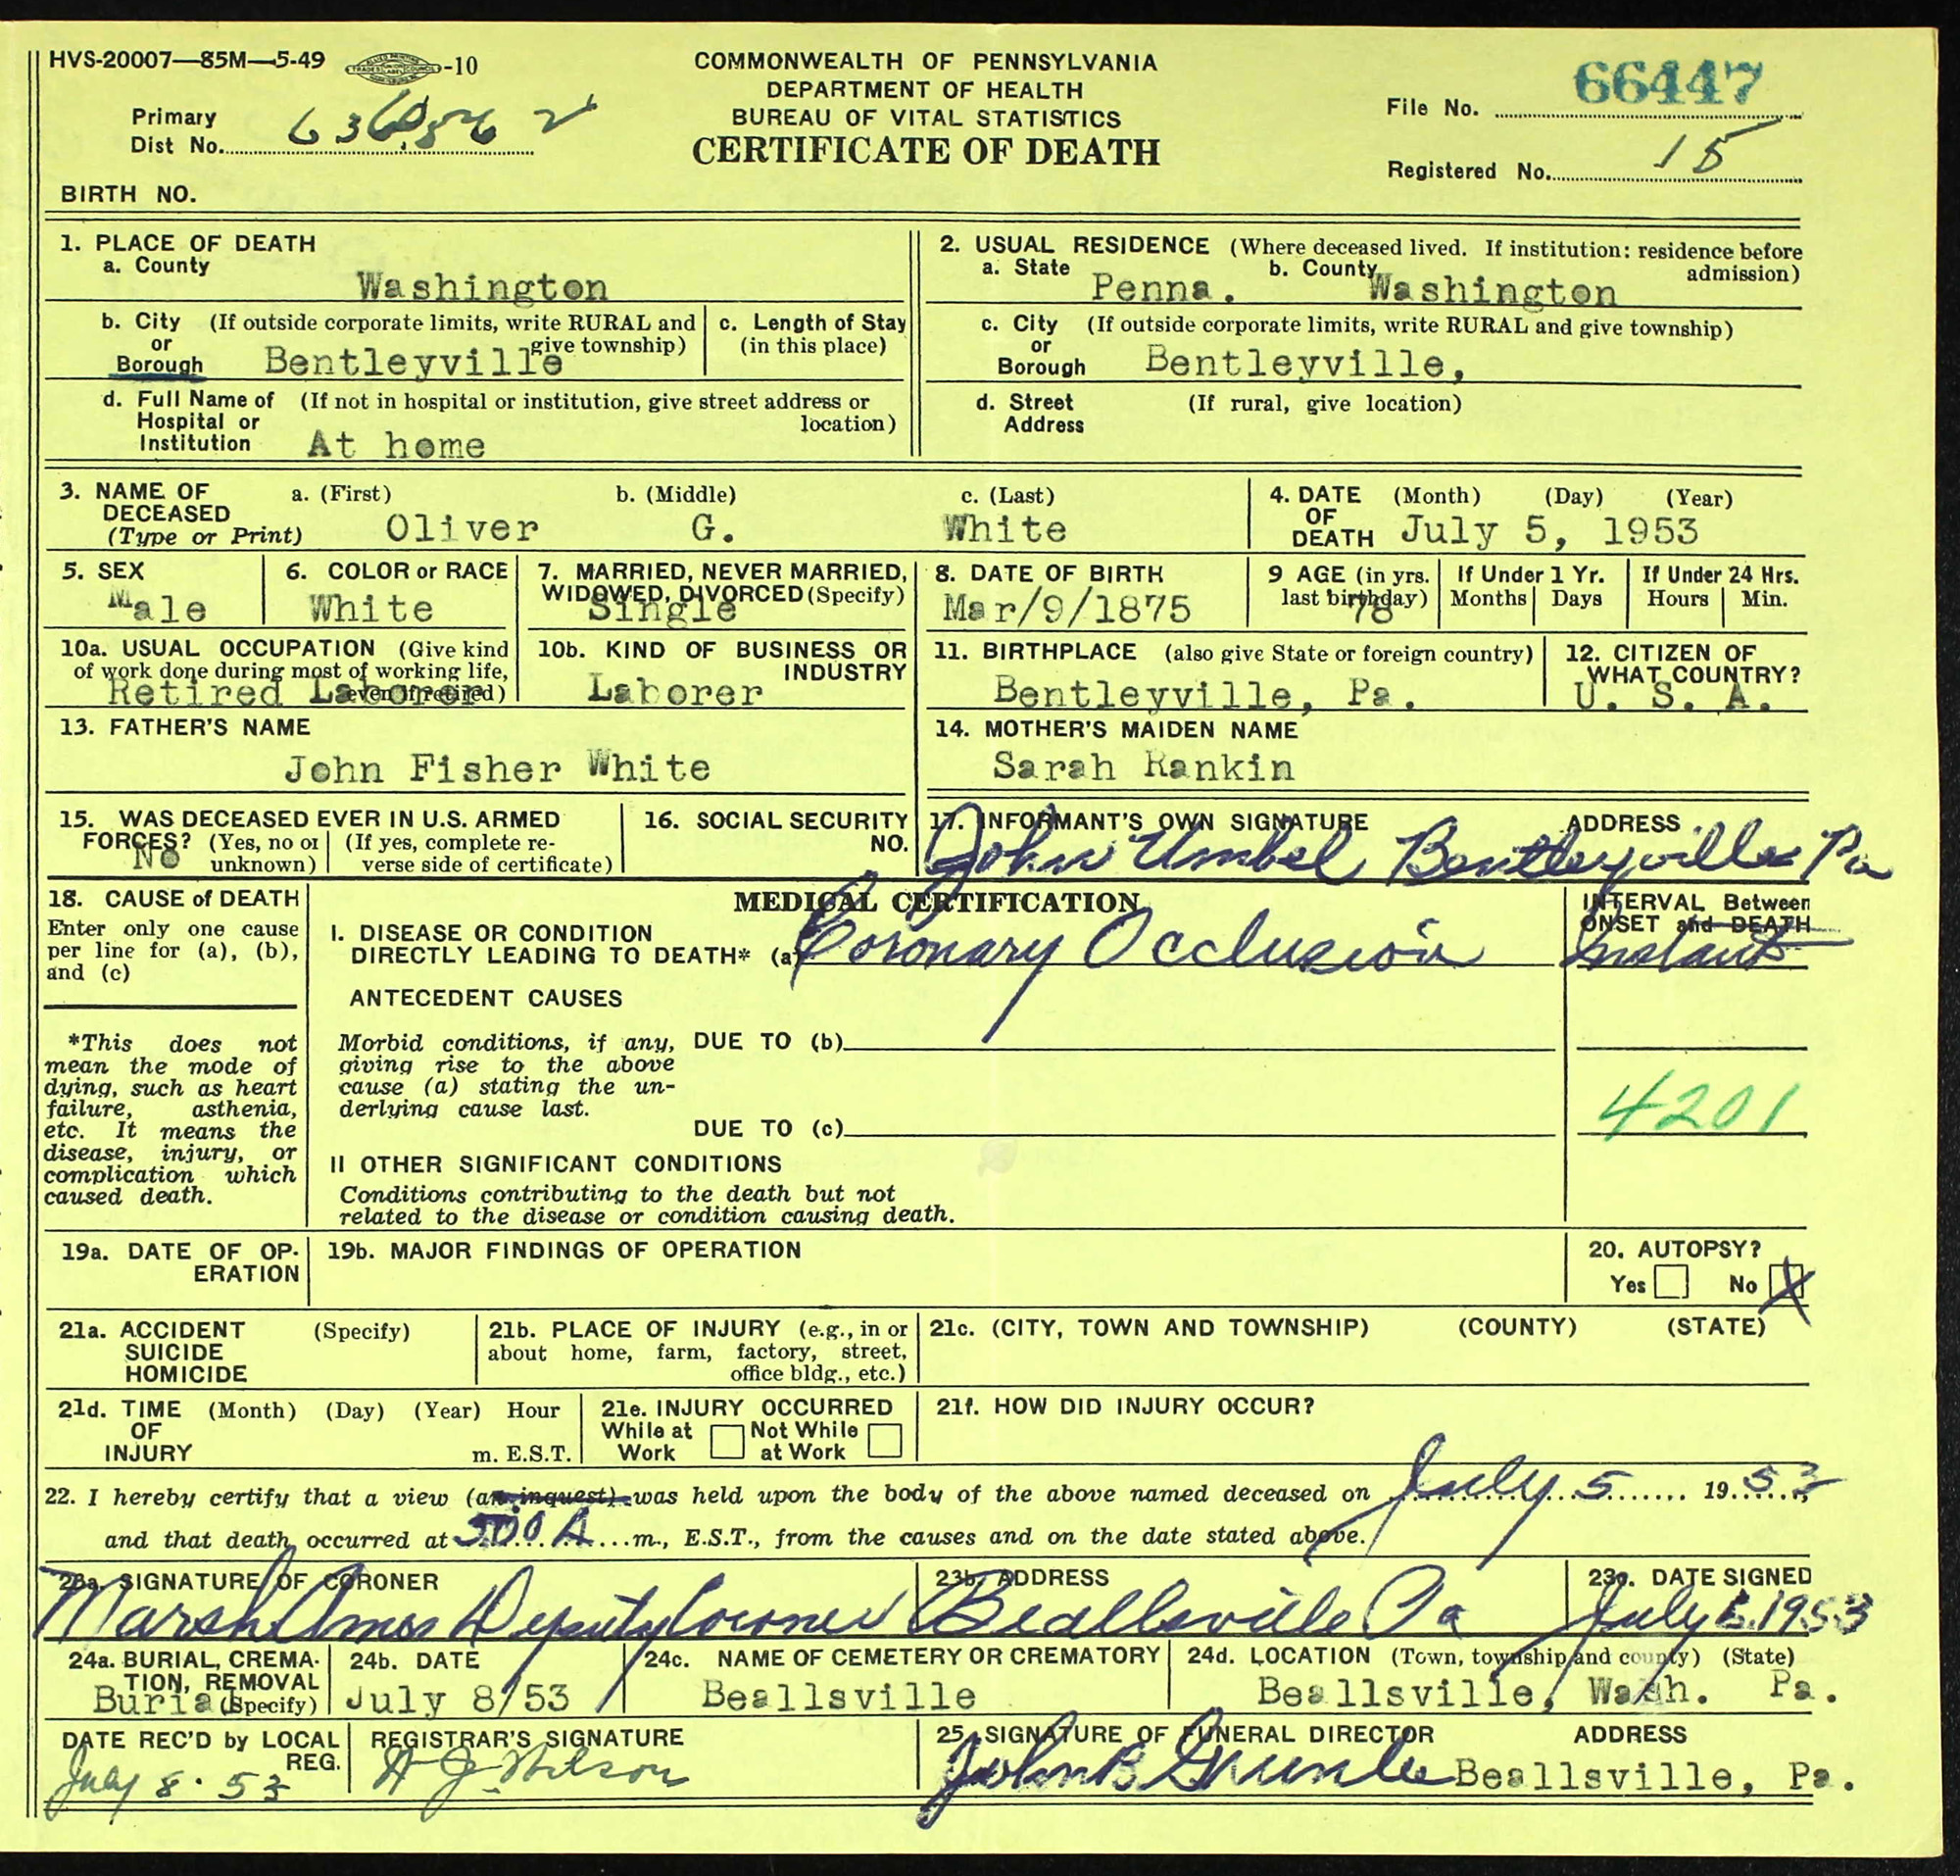 HVS-20007—85M—5-49 -10
COMMONWEALTH OF PENNSYLVANIA
DEPARTMENT OF HEALTH
BUREAU OF VITAL STATISTICS
CERTIFICATE OF DEATH
Primary
Dist No.
File No. 66447
Registered No. 15
BIRTH NO.
1. PLACE OF DEATH
a. County
Washington
b. City (If outside corporate limits, write RURAL and
or give township)
Borough Bentleyville
c. Length of Stay
(in this place)
d. Full Name of (If not in hospital or institution, give street address or
Hospital or location)
Institution At home
2. USUAL RESIDENCE (Where deceased lived. If institution: residence before
a. State b. County admission)
Penna. Washington
c. City (If outside corporate limits, write RURAL and give township)
or
Borough Bentleyville,
d. Street (If rural, give location)
Address
3. NAME OF a. (First) b. (Middle) c. (Last)
DECEASED
(Type or Print) Oliver G. White
4. DATE (Month) (Day) (Year)
OF
DEATH July 5, 1953
5. SEX
Male
6. COLOR or RACE
White
7. MARRIED, NEVER MARRIED,
WIDOWED, DIVORCED (Specify)
Single
8. DATE OF BIRTH
Mar/9/1875
9 AGE (in yrs.
last birthday)
78
If Under 1 Yr.
Months Days
If Under 24 Hrs.
Hours Min.
10a. USUAL OCCUPATION (Give kind
of work done during most of working life,
even if retired)
Retired Laborer
10b. KIND OF BUSINESS OR
INDUSTRY
Laborer
11. BIRTHPLACE (also give State or foreign country)
Bentleyville, Pa.
12. CITIZEN OF
WHAT COUNTRY?
U. S. A.
13. FATHER'S NAME
John Fisher White
14. MOTHER'S MAIDEN NAME
Sarah Rankin
15. WAS DECEASED EVER IN U.S. ARMED
FORCES? (Yes, no or (If yes, complete re-
No unknown) verse side of certificate)
16. SOCIAL SECURITY
NO.
17. INFORMANT'S OWN SIGNATURE ADDRESS
John Umbel Bentleyville Pa
18. CAUSE of DEATH
Enter only one cause
per line for (a), (b),
and (c)
*This does not
mean the mode of
dying, such as heart
failure, asthenia,
etc. It means the
disease, injury, or
complication which
caused death.
MEDICAL CERTIFICATION
I. DISEASE OR CONDITION
DIRECTLY LEADING TO DEATH* (a) Coronary Occlusion
INTERVAL Between
ONSET and DEATH
Instant
ANTECEDENT CAUSES
Morbid conditions, if any,
giving rise to the above
cause (a) stating the un-
derlying cause last.
DUE TO (b)
DUE TO (c)
4201
II OTHER SIGNIFICANT CONDITIONS
Conditions contributing to the death but not
related to the disease or condition causing death.
19a. DATE OF OP-
ERATION
19b. MAJOR FINDINGS OF OPERATION
20. AUTOPSY?
Yes No X
21a. ACCIDENT (Specify)
SUICIDE
HOMICIDE
21b. PLACE OF INJURY (e.g., in or
about home, farm, factory, street,
office bldg., etc.)
21c. (CITY, TOWN AND TOWNSHIP) (COUNTY) (STATE)
21d. TIME (Month) (Day) (Year) Hour
OF
INJURY m. E.S.T.
21e. INJURY OCCURRED
While at Not While
Work at Work
21f. HOW DID INJURY OCCUR?
22. I hereby certify that a view (an inquest) was held upon the body of the above named deceased on July 5 1953,
and that death occurred at 500 A m., E.S.T., from the causes and on the date stated above.
23a. SIGNATURE OF CORONER
Marsh Amos Deputy Coroner
23b. ADDRESS
Beallsville Pa
23c. DATE SIGNED
July 1953
24a. BURIAL, CREMA-
TION, REMOVAL
Burial (Specify)
24b. DATE
July 8/53
24c. NAME OF CEMETERY OR CREMATORY
Beallsville
24d. LOCATION (Town, township and county) (State)
Beallsville, Wash. Pa.
DATE REC'D by LOCAL
REG.
July 8. 53
REGISTRAR'S SIGNATURE
25. SIGNATURE OF FUNERAL DIRECTOR ADDRESS
John B. Beallsville, Pa.